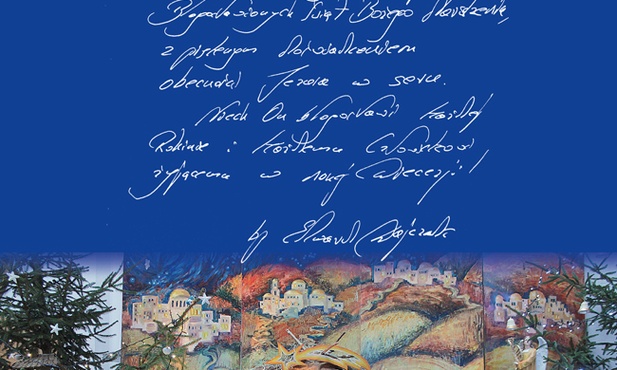 Błogosławionych Świąt Bożego Narodzenia,
z pięknym doświadczeniem
obecności Jezusa w sercu.
Niech On błogosławi każdej
Rodzinie i każdemu Człowiekowi
żyjącemu w naszej Diecezji!